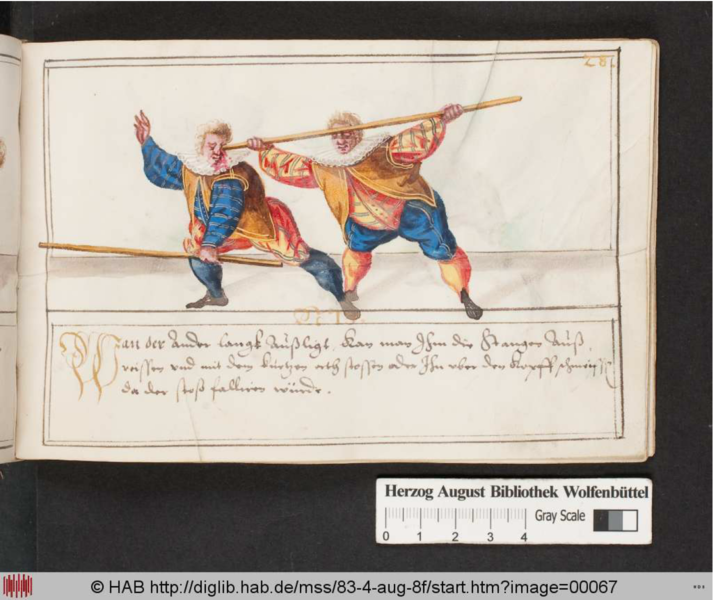 28.
Wan der Ander langk Außligt kan man Ihm die Stangen Auß
reissen und mit dem kurtzen orth stossen oder Ihn uber den kopff schmeissen
da der stoß fallieren würde.
Herzog August Bibliothek Wolfenbüttel
Gray Scale
0 1 2 3 4
© HAB http://diglib.hab.de/mss/83-4-aug-8f/start.htm?image=00067